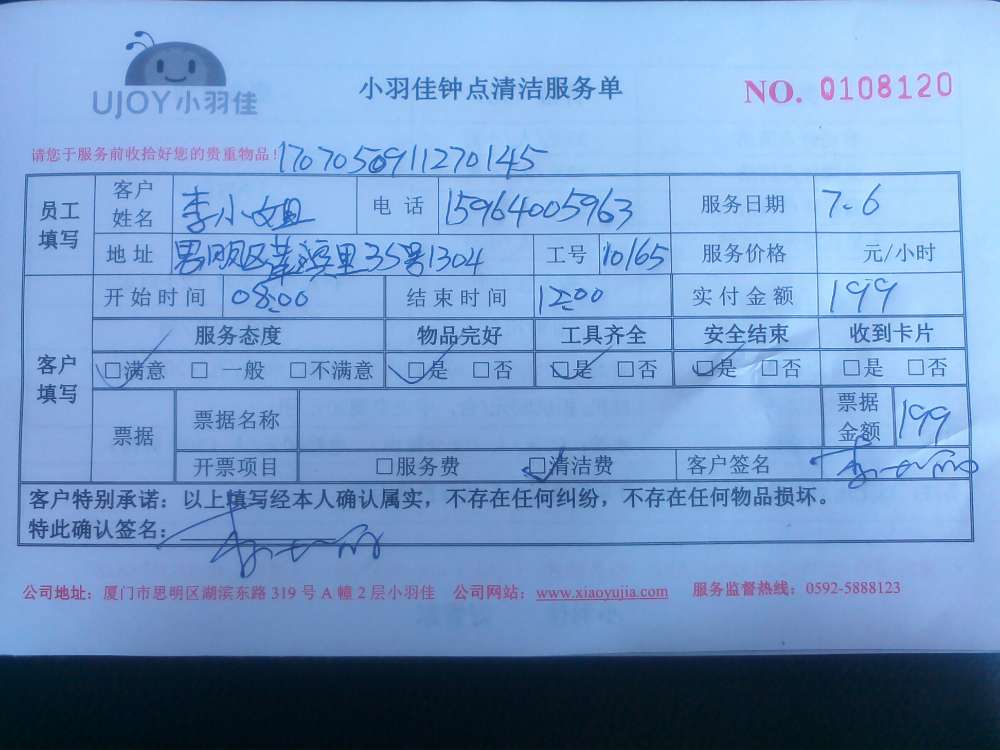 UJOY小羽佳
小羽佳钟点清洁服务单
NO. 0108120
请您于服务前收拾好您的贵重物品! 1707050911270145
员工填写 客户姓名 李小姐 电话 15964005963 服务日期 7.6
地址 35号1304 工号 10165 服务价格 元/小时
客户填写 开始时间 08:00 结束时间 12:00 实付金额 199
服务态度 物品完好 工具齐全 安全结束 收到卡片
☑满意 □一般 □不满意 ☑是 □否 ☑是 □否 ☑是 □否 □是 □否
票据 票据名称 票据金额 199
开票项目 □服务费 ☑清洁费 客户签名
客户特别承诺:以上填写经本人确认属实,不存在任何纠纷,不存在任何物品损坏。
特此确认签名:
公司地址:厦门市思明区湖滨东路 319 号 A 幢 2 层小羽佳 公司网站:www.xiaoyujia.com 服务监督热线:0592-5888123